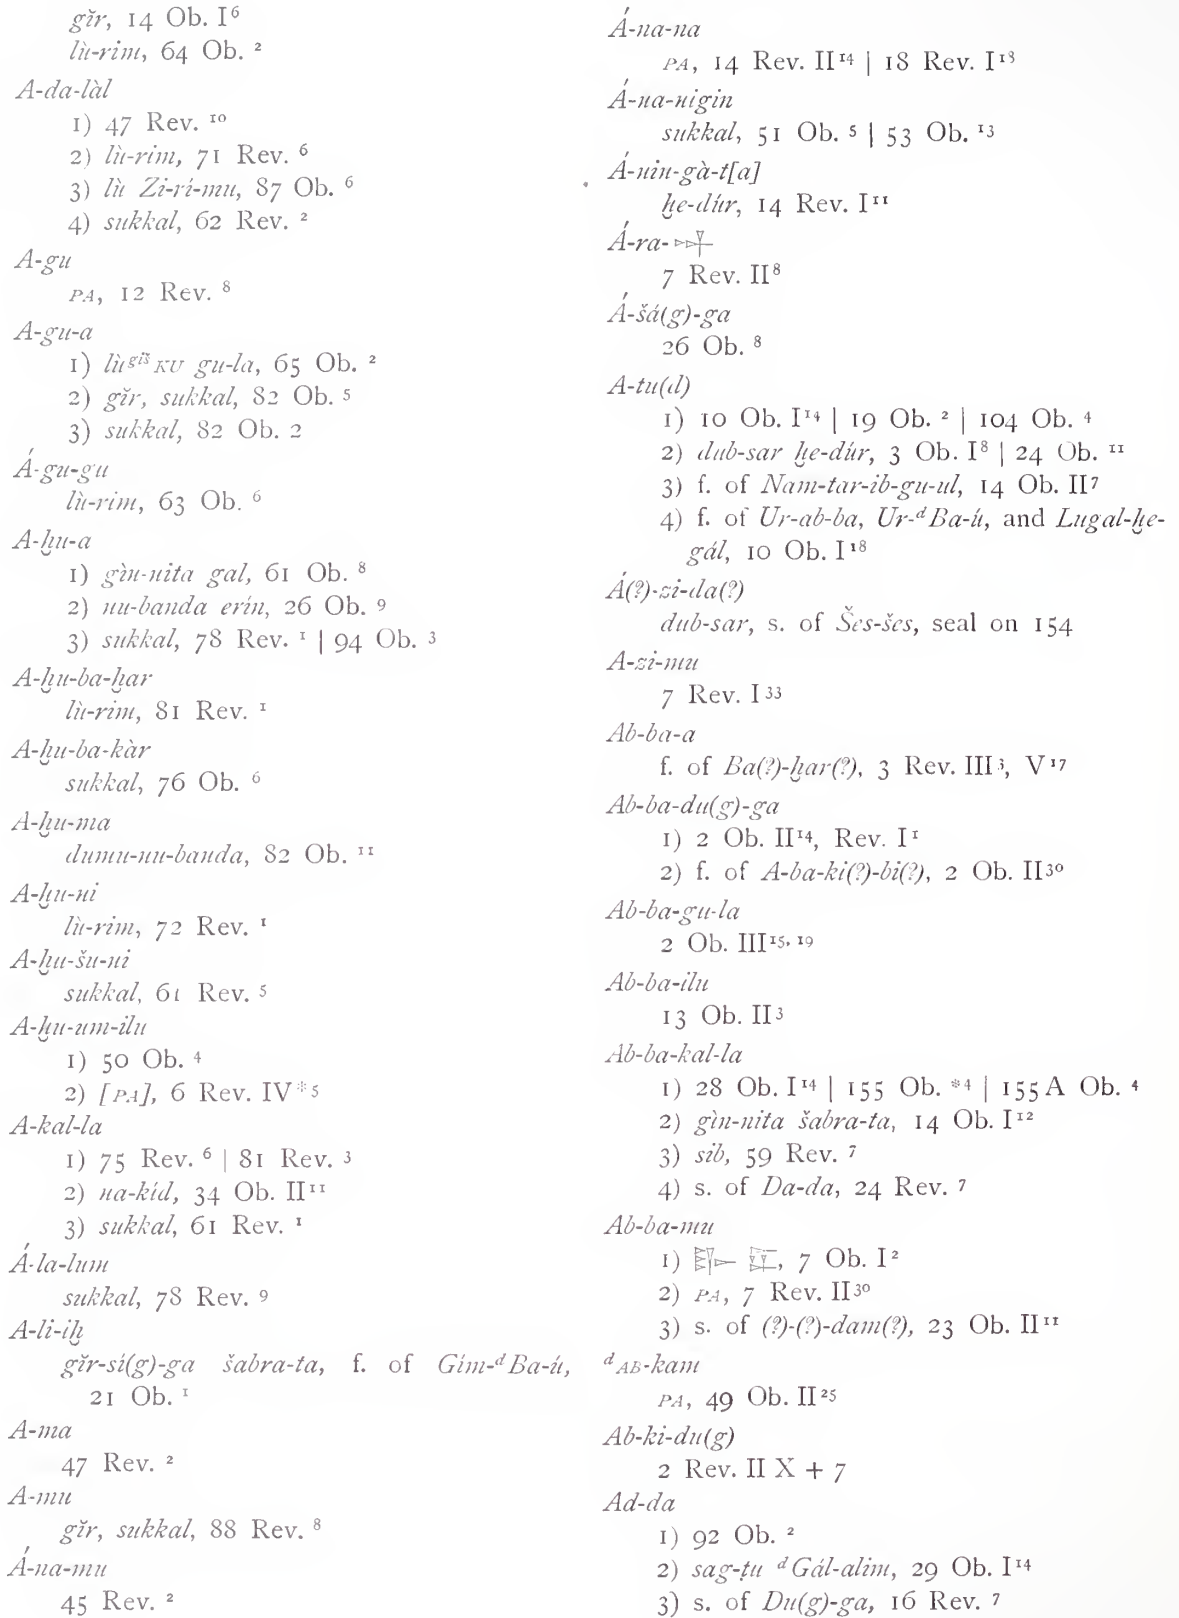 gĭr, 14 Ob. I⁶
lù-rim, 64 Ob. ²
A-da-làl
1) 47 Rev. ¹⁰
2) lù-rim, 71 Rev. ⁶
3) lù Zi-rí-mu, 87 Ob. ⁶
4) sukkal, 62 Rev. ²
A-gu
PA, 12 Rev. ⁸
A-gu-a
1) lù ᵍⁱˢ̌ KU gu-la, 65 Ob. ²
2) gĭr, sukkal, 82 Ob. ⁵
3) sukkal, 82 Ob. 2
Á-gu-gu
lù-rim, 63 Ob. ⁶
A-ḫu-a
1) gìn-nita gal, 61 Ob. ⁸
2) nu-banda erín, 26 Ob. ⁹
3) sukkal, 78 Rev. ¹ | 94 Ob. ³
A-ḫu-ba-ḫar
lù-rim, 81 Rev. ¹
A-ḫu-ba-kàr
sukkal, 76 Ob. ⁶
A-ḫu-ma
dumu-nu-banda, 82 Ob. ¹¹
A-ḫu-ni
lù-rim, 72 Rev. ¹
A-ḫu-šu-ni
sukkal, 61 Rev. ⁵
A-ḫu-um-ilu
1) 50 Ob. ⁴
2) [PA], 6 Rev. IV*⁵
A-kal-la
1) 75 Rev. ⁶ | 81 Rev. ³
2) na-kíd, 34 Ob. II¹¹
3) sukkal, 61 Rev. ¹
Á-la-lum
sukkal, 78 Rev. ⁹
A-li-iḫ
gĭr-sí(g)-ga šabra-ta, f. of Gím-ᵈBa-ú,
21 Ob. ¹
A-ma
47 Rev. ²
A-mu
gĭr, sukkal, 88 Rev. ⁸
Á-na-mu
45 Rev. ²
Á-na-na
PA, 14 Rev. II¹⁴ | 18 Rev. I¹⁸
Á-na-nigin
sukkal, 51 Ob. ⁵ | 53 Ob. ¹³
Á-nin-gà-t[a]
ḫe-dúr, 14 Rev. I¹¹
Á-ra-
7 Rev. II⁸
Á-šá(g)-ga
26 Ob. ⁸
A-tu(d)
1) 10 Ob. I¹⁴ | 19 Ob. ² | 104 Ob. ⁴
2) dub-sar ḫe-dúr, 3 Ob. I⁸ | 24 Ob. ¹¹
3) f. of Nam-tar-ib-gu-ul, 14 Ob. II⁷
4) f. of Ur-ab-ba, Ur-ᵈBa-ú, and Lugal-ḫe-
gál, 10 Ob. I¹⁸
Á(?)-zi-da(?)
dub-sar, s. of Šeš-šeš, seal on 154
A-zi-mu
7 Rev. I³³
Ab-ba-a
f. of Ba(?)-ḫar(?), 3 Rev. III³, V¹⁷
Ab-ba-du(g)-ga
1) 2 Ob. II¹⁴, Rev. I¹
2) f. of A-ba-ki(?)-bi(?), 2 Ob. II³⁰
Ab-ba-gu-la
2 Ob. III¹⁵, ¹⁹
Ab-ba-ilu
13 Ob. II³
Ab-ba-kal-la
1) 28 Ob. I¹⁴ | 155 Ob. *⁴ | 155 A Ob. ⁴
2) gìn-nita šabra-ta, 14 Ob. I¹²
3) sib, 59 Rev. ⁷
4) s. of Da-da, 24 Rev. ⁷
Ab-ba-mu
1) , 7 Ob. I²
2) PA, 7 Rev. II³⁰
3) s. of (?)-(?)-dam(?), 23 Ob. II¹¹
ᵈAB-kam
PA, 49 Ob. II²⁵
Ab-ki-du(g)
2 Rev. II X + 7
Ad-da
1) 92 Ob. ²
2) sag-ṭu ᵈGál-alim, 29 Ob. I¹⁴
3) s. of Du(g)-ga, 16 Rev. ⁷